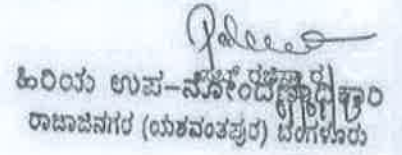 ಹಿರಿಯ ಉಪ-ನೋಂದಣಾಧಿಕಾರಿ
ರಾಜಾಜಿನಗರ (ಯಶವಂತಪುರ) ಬೆಂಗಳೂರು